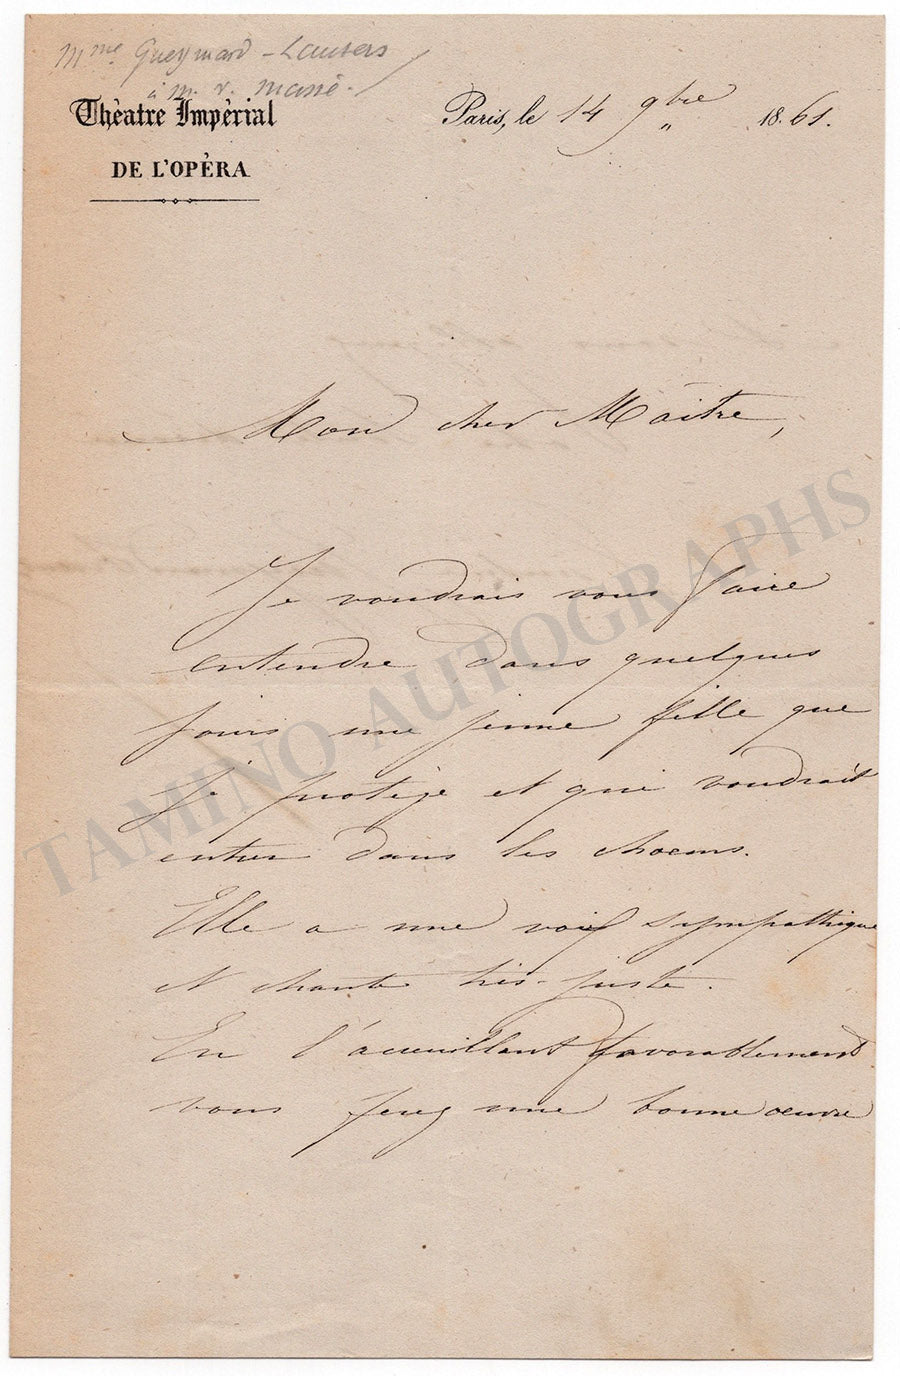 Mme Gueymard-Lauters
à M. V. Massé.
Théatre Impérial
DE L'OPÉRA
Paris, le 14 9bre 1861.
Mon cher Maître,
Je voudrais vous faire
entendre dans quelques
jours une jeune fille que
je protège et qui voudrait
entrer dans les choeurs.
Elle a une voix sympathique
et chante très-juste.
En l'acueillant favorablement
vous ferez une bonne oeuvre
TAMINO AUTOGRAPHS